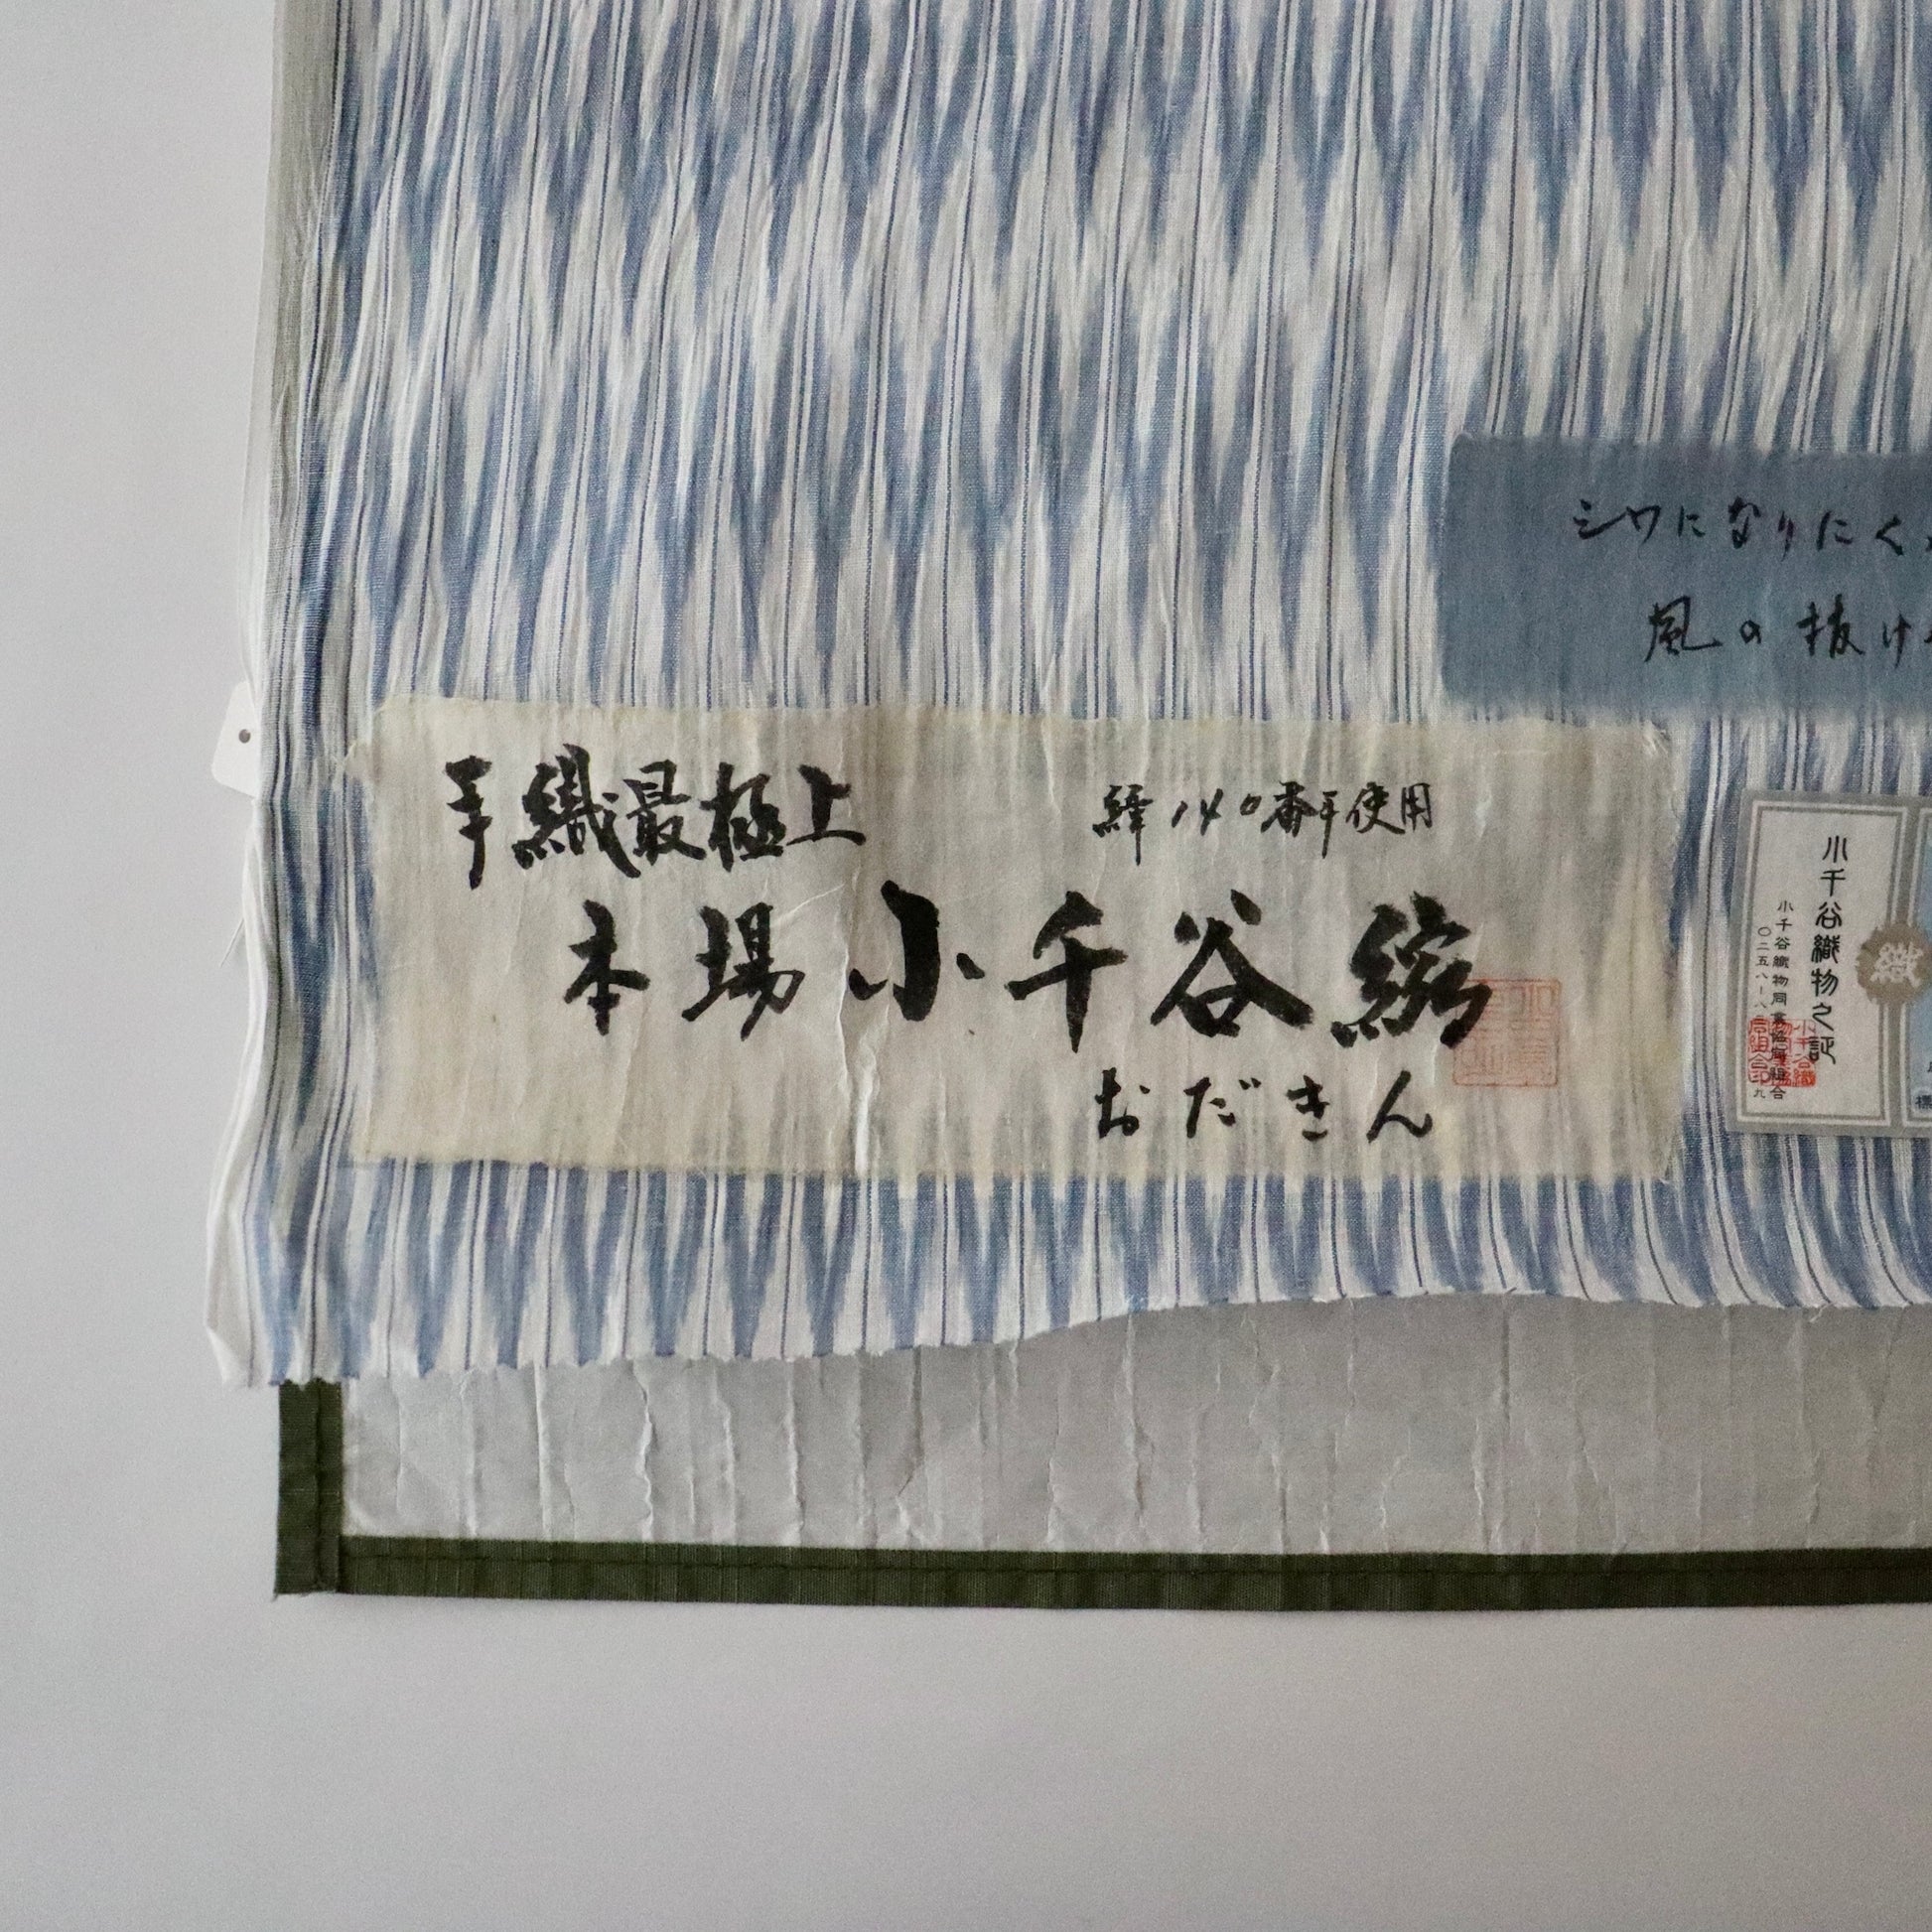 シワになりたく
風の抜け
手織最極上
緯140番手使用
本場小千谷縮
おだきん
小千谷織物之証
小千谷織物同業協同組合
織